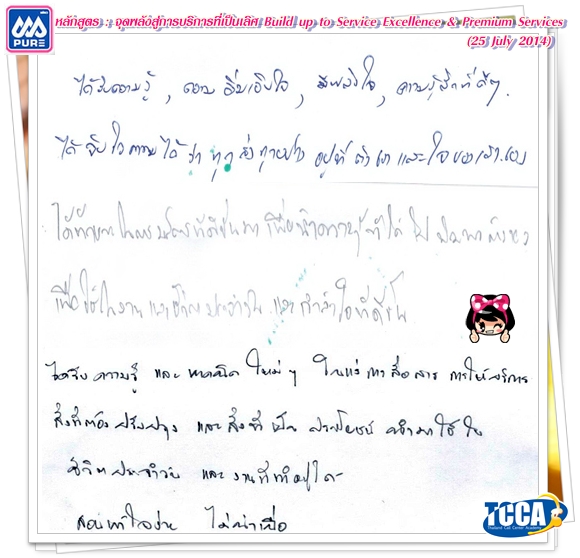 PURE
หลักสูตร : จุดพลังสู่การบริการที่เป็นเลิศ Build up to Service Excellence & Premium Services
(25 July 2014)
ได้รับความรู้ , ความอิ่มเอิบใจ , มีพลังใจ , ความรู้สึกที่ดีๆ.
ได้จับใจความได้ว่า ทุกสิ่งทุกอย่าง อยู่ที่ตัวเราและใจของเราเอง
เพื่อใช้ในงานและชีวิตประจำวัน และ
ได้รับ ความรู้ และ เทคนิค ใหม่ๆ ในแง่ การสื่อสาร การให้บริการ
สิ่งที่ต้องปรับปรุง และสิ่งที่ เป็น ประโยชน์ นำมาใช้ใน
ชีวิตประจำวัน และ งานที่ทำอยู่ได้
สอนเข้าใจง่าย ไม่น่าเบื่อ
TCCA
Thailand Call Center Academy